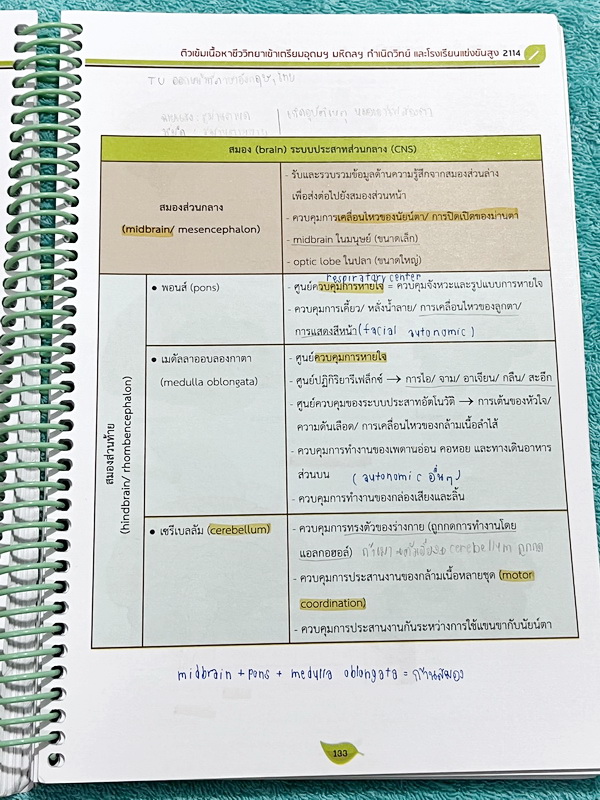 ติวเข้มเนื้อหาชีววิทยาเข้าเตรียมอุดมฯ มหิดลฯ กำเนิดวิทย์ และโรงเรียนแข่งขันสูง 2114
สมอง (brain) ระบบประสาทส่วนกลาง (CNS)
สมองส่วนกลาง
(midbrain/ mesencephalon)
- รับและรวบรวมข้อมูลด้านความรู้สึกจากสมองส่วนล่าง
เพื่อส่งต่อไปยังสมองส่วนหน้า
- ควบคุมการเคลื่อนไหวของนัยน์ตา/ การปิดเปิดของม่านตา
- midbrain ในมนุษย์ (ขนาดเล็ก)
- optic lobe ในปลา (ขนาดใหญ่)
สมองส่วนท้าย
(hindbrain/ rhombencephalon)
• พอนส์ (pons)
respiratory center
- ศูนย์ควบคุมการหายใจ = ควบคุมจังหวะและรูปแบบการหายใจ
- ควบคุมการเคี้ยว/ หลั่งน้ำลาย/ การเคลื่อนไหวของลูกตา/
การแสดงสีหน้า (facial autonomic)
• เมดัลลาออบลองกาตา
(medulla oblongata)
- ศูนย์ควบคุมการหายใจ
- ศูนย์ปฏิกิริยารีเฟล็กซ์ → การไอ/ จาม/ อาเจียน/ กลืน/ สะอึก
- ศูนย์ควบคุมของระบบประสาทอัตโนวัติ → การเต้นของหัวใจ/
ความดันเลือด/ การเคลื่อนไหวของกล้ามเนื้อลำไส้
- ควบคุมการทำงานของเพดานอ่อน คอหอย และทางเดินอาหาร
ส่วนบน (autonomic อื่นๆ)
- ควบคุมการทำงานของกล่องเสียงและลิ้น
• เซรีเบลลัม (cerebellum)
- ควบคุมการทรงตัวของร่างกาย (ถูกกดการทำงานโดย
แอลกอฮอล์) cerebellum ถูกกด
- ควบคุมการประสานงานของกล้ามเนื้อหลายชุด (motor
coordination)
- ควบคุมการประสานงานกันระหว่างการใช้แขนขากับนัยน์ตา
midbrain + pons + medulla oblongata = ก้านสมอง
133